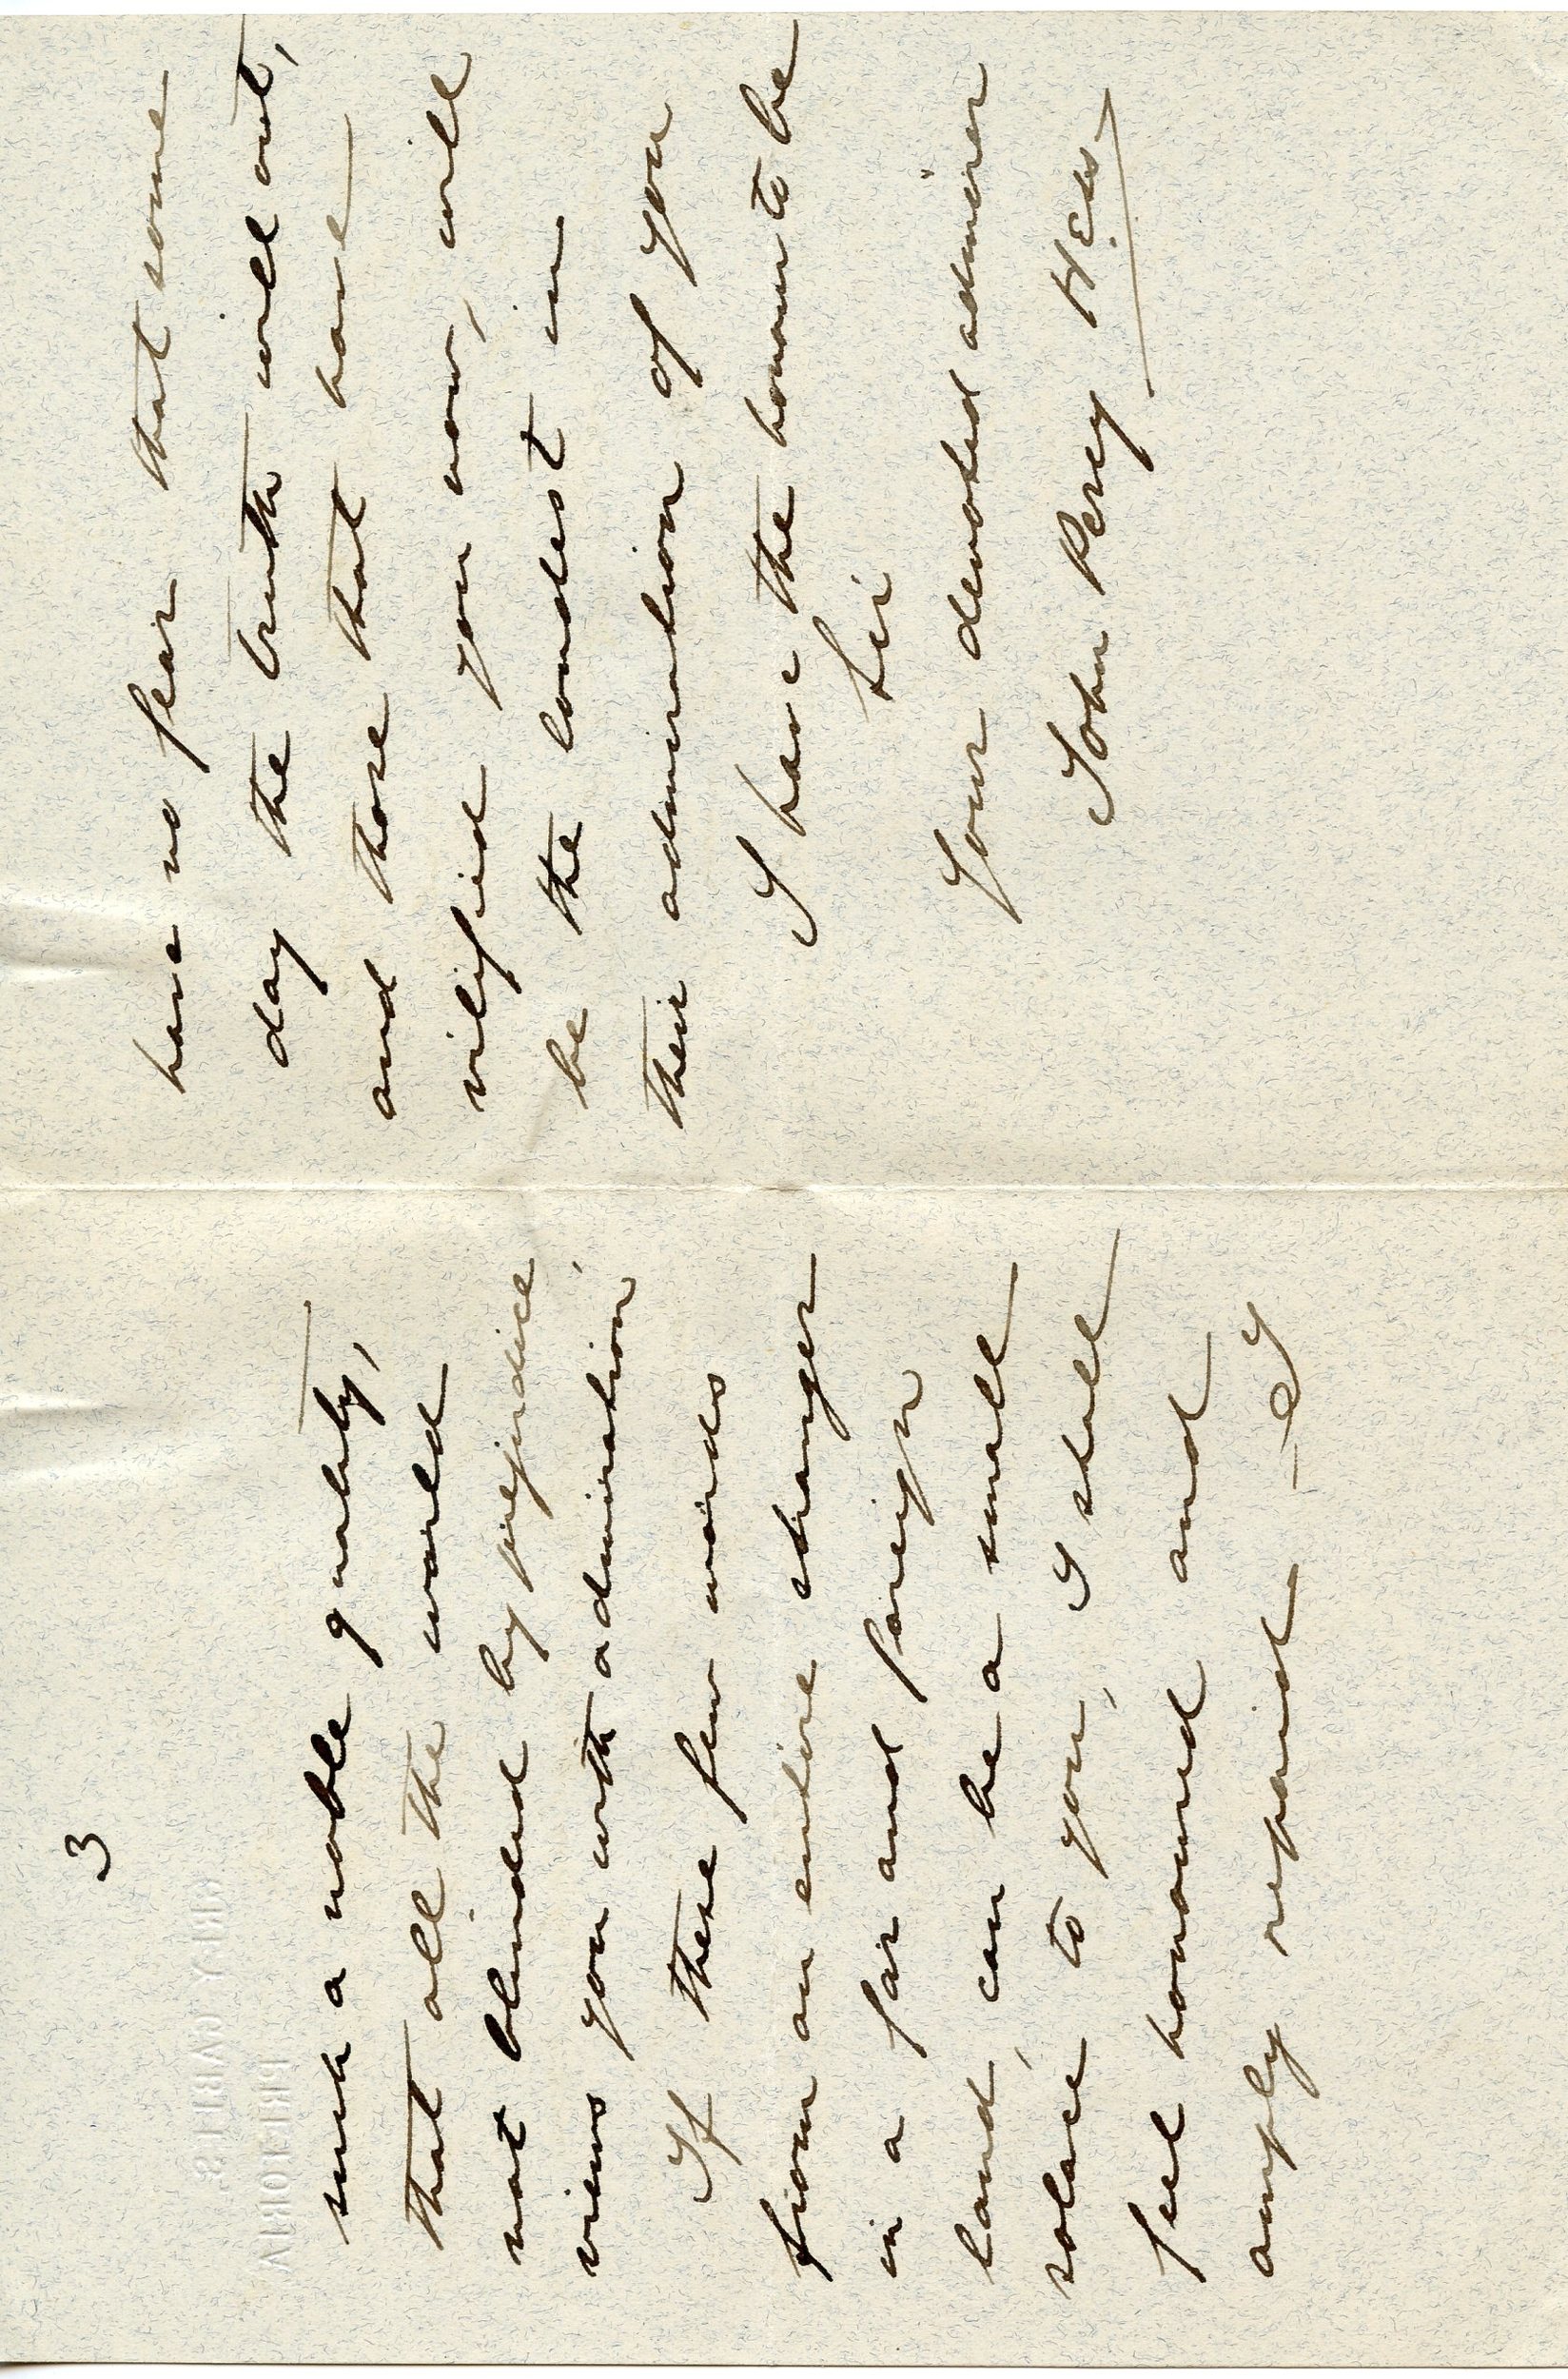 3
such a noble quality,
that all the world
not blinded by prejudice,
views you with admiration,
If these few words
from an entire stranger
in a far and foreign
land, can be a small
solace to you, I shall
feel honoured and
amply repaid — I
have no fear that some
day the truth will out,
and those that have
vilified you now, will
be the loudest in
their admiration of you
I have the honour to be
Sir
Your devoted admirer
John Percy